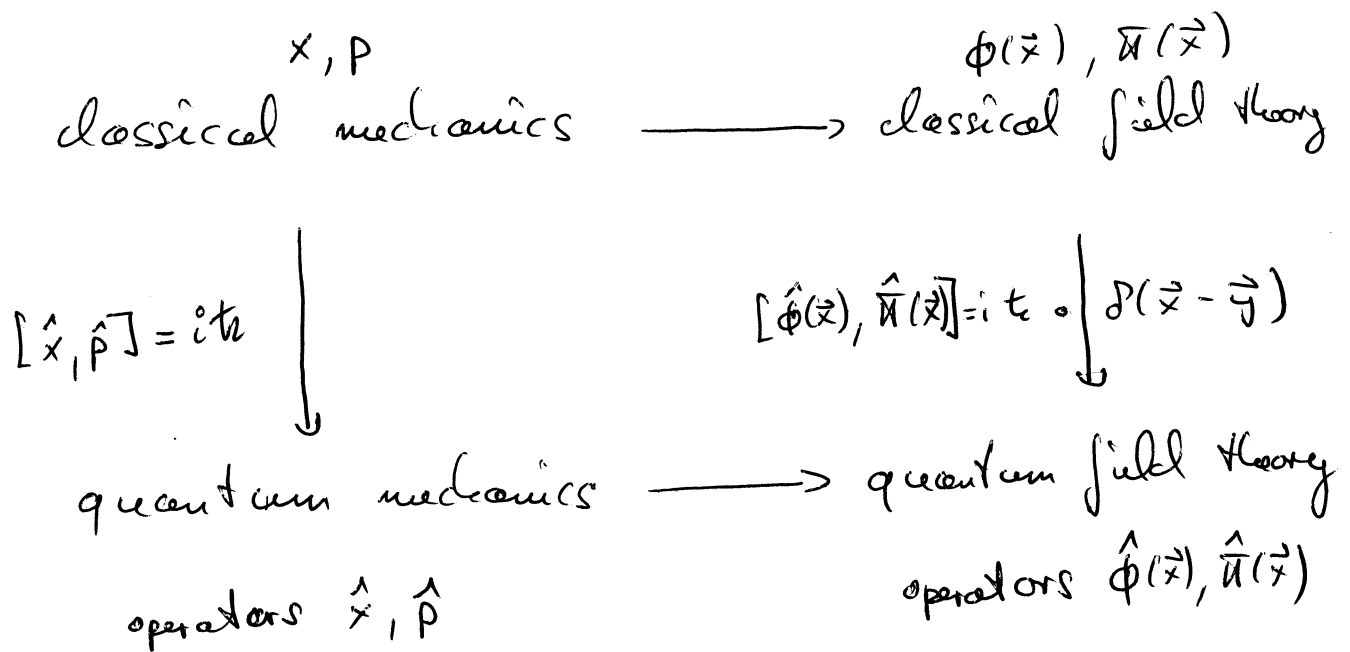 x, p φ(x⃗), π(x⃗)
classical mechanics ⟶ classical field theory
[x̂, p̂] = iħ [φ̂(x⃗), π̂(x⃗)] = iħ · δ(x⃗ - y⃗)
quantum mechanics ⟶ quantum field theory
operators x̂, p̂ operators φ̂(x⃗), π̂(x⃗)